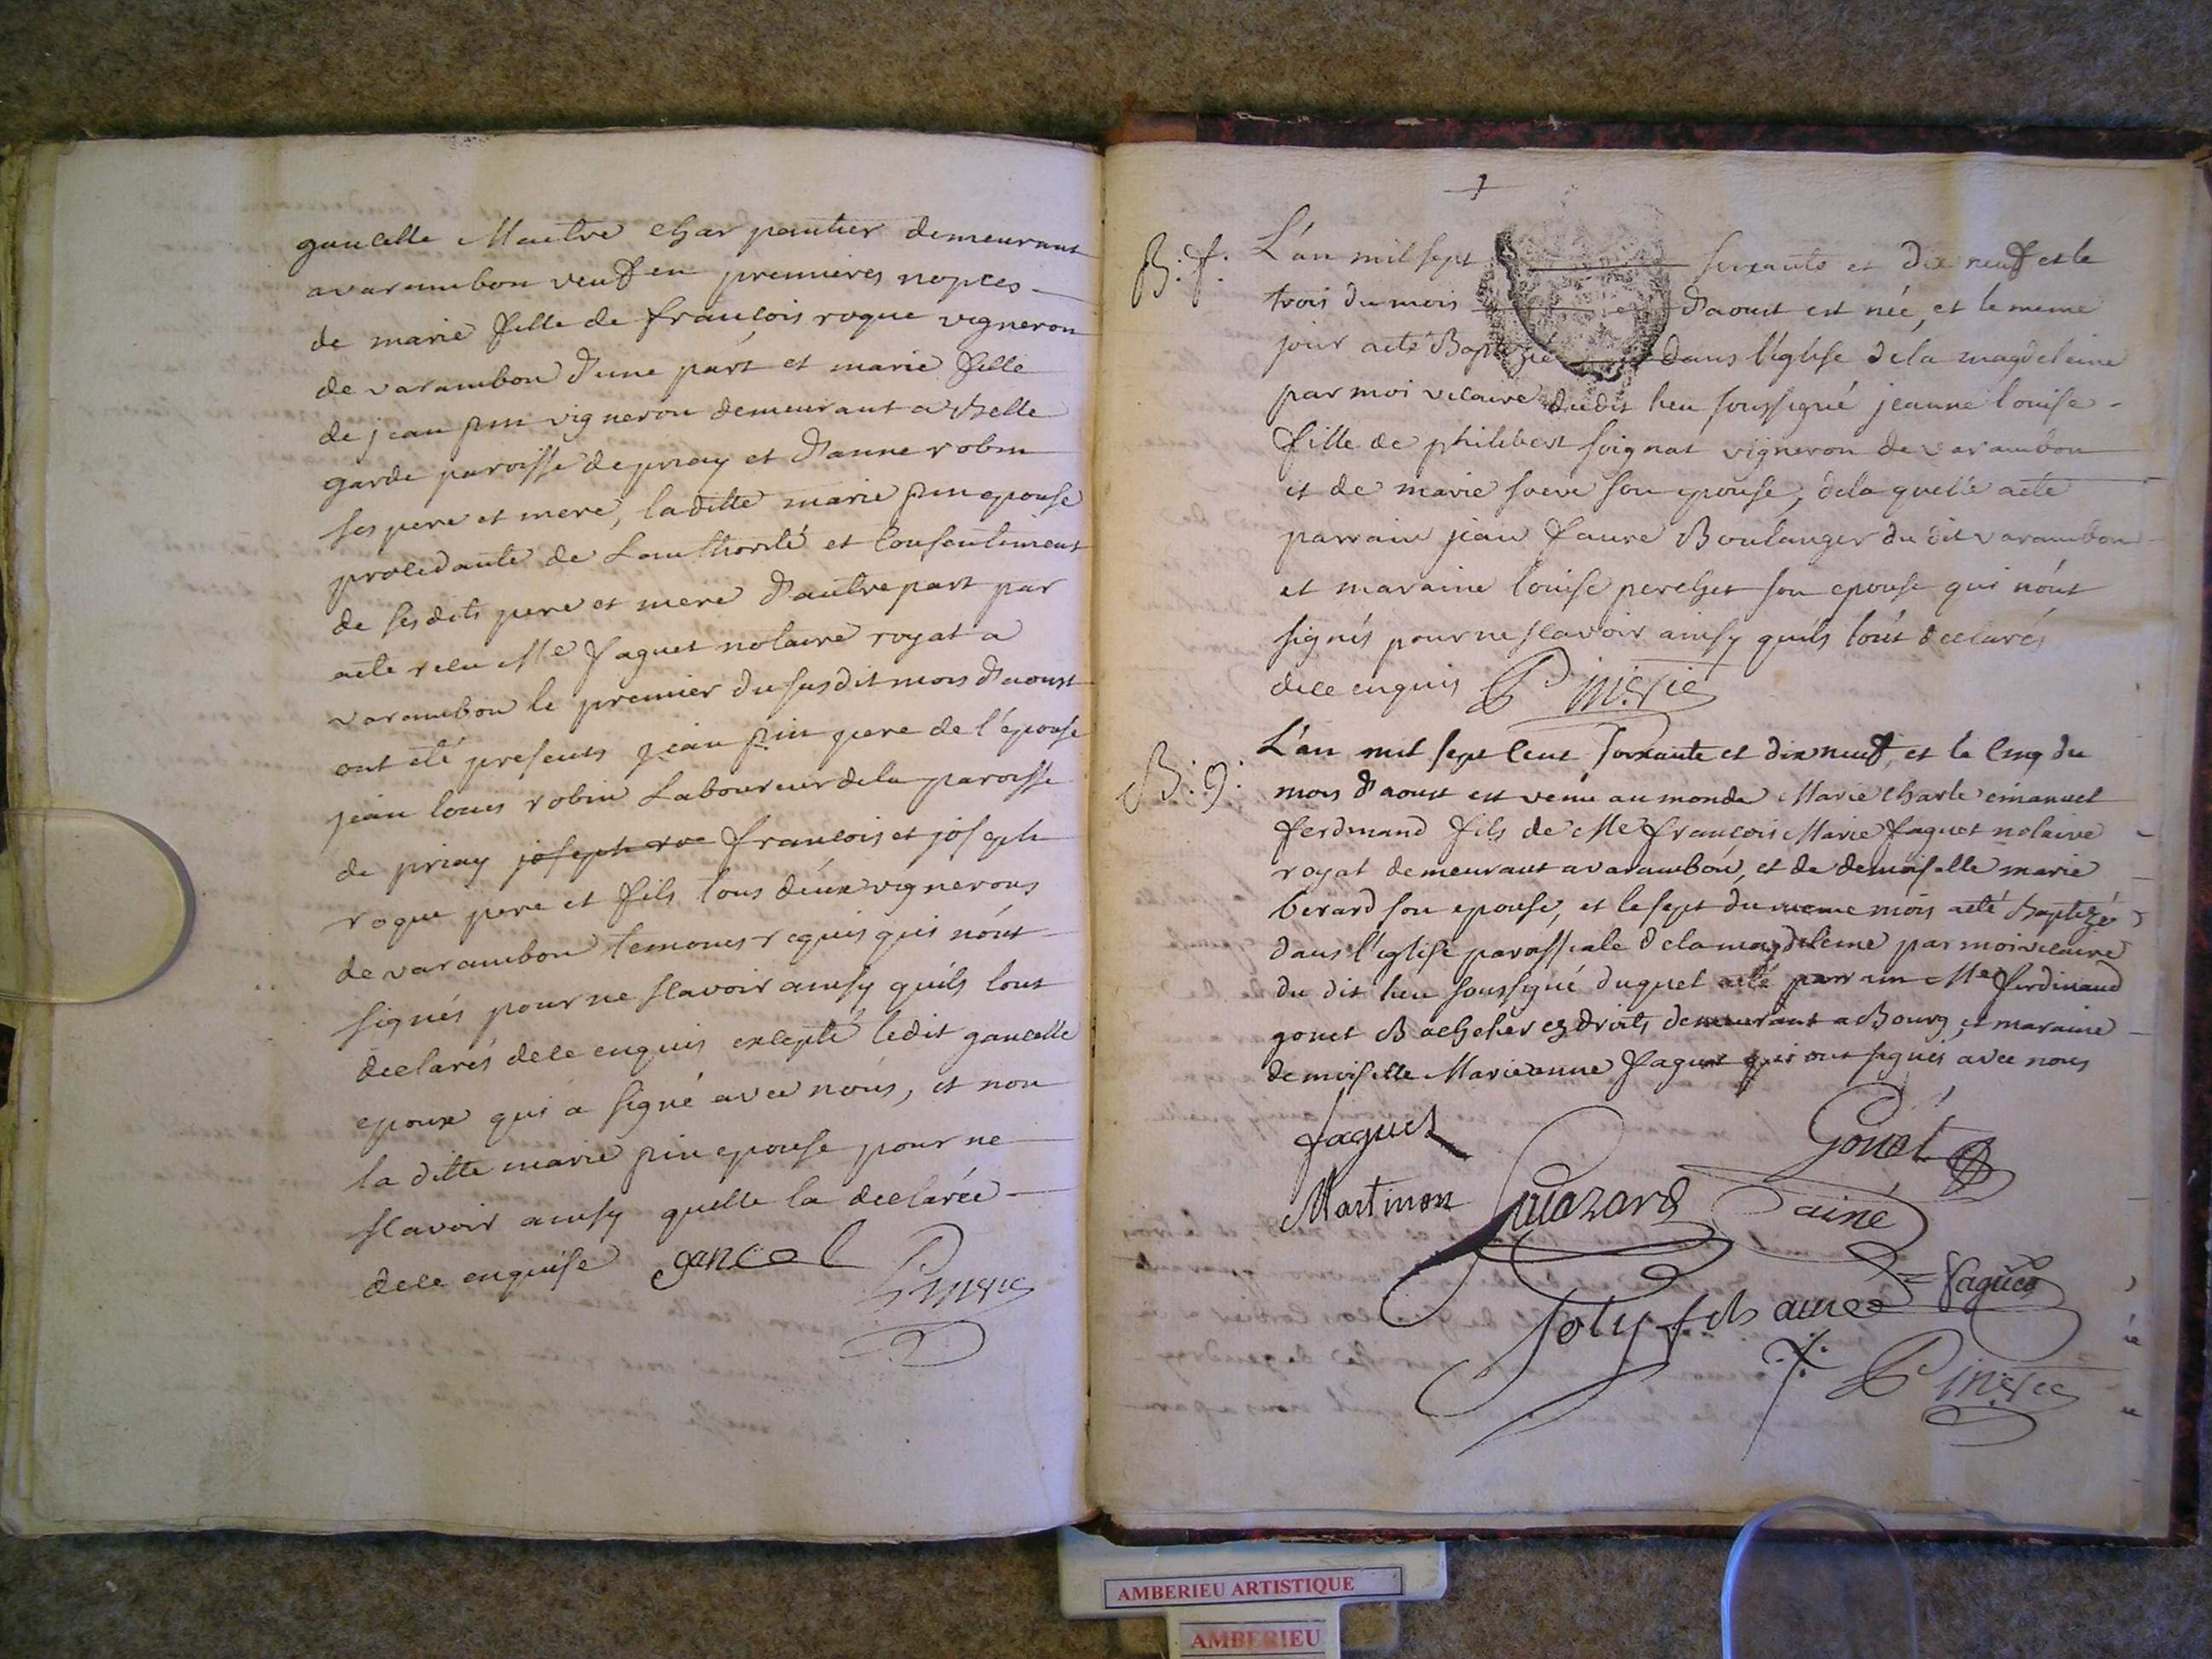 gancelle Maitre charpentier demeurant
a varambon veuf en premieres nopces
de marie fille de françois roque vigneron
de varambon d'une part et marie fille
de jean pin vigneron demeurant a Belle
garde paroisse de priay et d'anne robin
ses pere et mere, laditte marie pin epouse
procedante de L'authorité et consentement
de sesdits pere et mere d'autre part par
acte recu Me faguet notaire royal a
varambon le premier du susdit mois d'aoust
ont été presents jean pin pere de l'épouse
jean louis robin Laboureur de la paroisse
de priay joseph roe françois et joseph
roque pere et fils tous deux vignerons
de varambon temoins requis qui n'ont
signés pour ne scavoir ainsy quils l'ont
declarés de ce enquis excepté ledit gancelle
epoux qui a signé avec nous, et non
la ditte marie pin epouse pour ne
scavoir ainsy quelle la declarée
de ce enquise gancel
+
B: f: L'an mil sept soixante et dix neuf et le
trois du mois d'aoust est née, et le meme
jour a eté Baptizée dans l'église de la magdeleine
par moi vicaire dudit lieu soussigné jeanne louise
fille de philibert soignat vigneron de varambon
et de marie soeve son epouse, de laquelle a eté
parrain jean faure Boulanger du dit varambon
et maraine louise percher son epouse qui n'ont
signés pour ne scavoir ainsy quils l'ont declarés
de ce enquis
B: g: L'an mil sept cent soixante et dix neuf, et le cinq du
mois d'aoust est venu au monde Marie charle emanuel
ferdinand fils de Me françois Marie faguet notaire
royal demeurant a varambon, et de demoiselle marie
berard son epouse, et le sept du meme mois a eté Baptizé
dans l'église paroissiale de la magdeleine par moi vicaire
du dit lieu soussigné duquel a eté parrain Me ferdinand
gonet Bachelier ez droits demeurant a Bourg, et maraine
demoiselle Marieanne faguet qui ont signés avec nous
faguet Gonet
Martinon ainé
Joly fils ainé faguet
AMBERIEU ARTISTIQUE
AMBERIEU